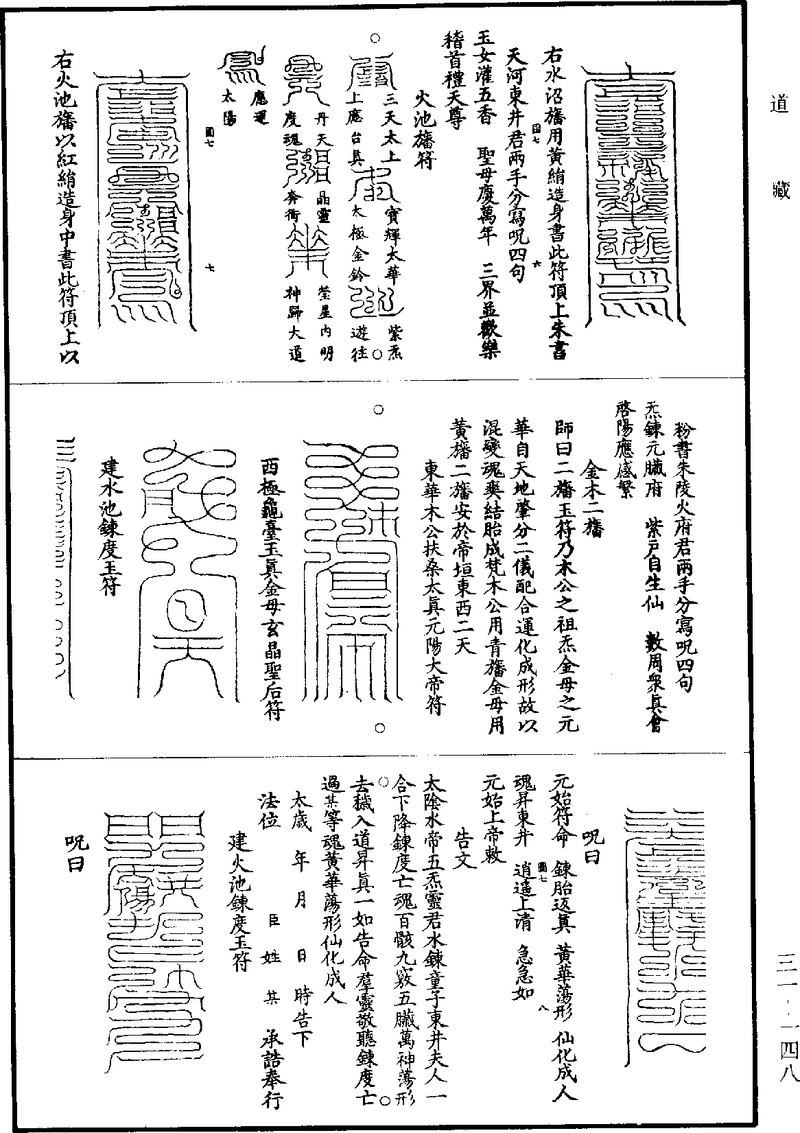 道藏
右水沼旛用黃絹造身書此符頂上朱書
天河東井君兩手分寫呪四句
玉女灌五香　聖母慶萬年　三界並歡樂
稽首禮天尊
火池旛符
三天太上
上應台真
寶輝太華
太極金鈴
紫炁
遊往
丹天
度魂
晶靈
奔衝
瑩星內明
神歸大道
應運
太陽
圖七
六
圖七
七
右火池旛以紅絹造身中書此符頂上以
粉書朱陵火府君兩手分寫呪四句
炁鍊元臟府　紫戶自生仙　數周衆真會
啓陽應感繫
金木二旛
師曰二旛玉符乃木公之祖炁金母之元
華自天地肇分二儀配合運化成形故以
混變魂爽結胎成梵木公用青旛金母用
黃旛二旛安於帝垣東西二天
東華木公扶桑太真元陽大帝符
西極龜臺玉真金母玄晶聖后符
建水池鍊度玉符
呪曰
元始符命　鍊胎返真　黃華蕩形　仙化成人
魂昇東井　逍遥上清　急急如
元始上帝敕
圖七
八
告文
太陰水帝五炁靈君水鍊童子東井夫人一
合下降鍊度亡魂百骸九竅五臟萬神蕩形
去穢入道昇真一如告命羣靈敬聽鍊度亡
過某等魂黃華蕩形仙化成人
太歲　年　月　日　時告下
法位　臣　姓　某　承誥奉行
建火池鍊度玉符
呪曰
三一·一四八